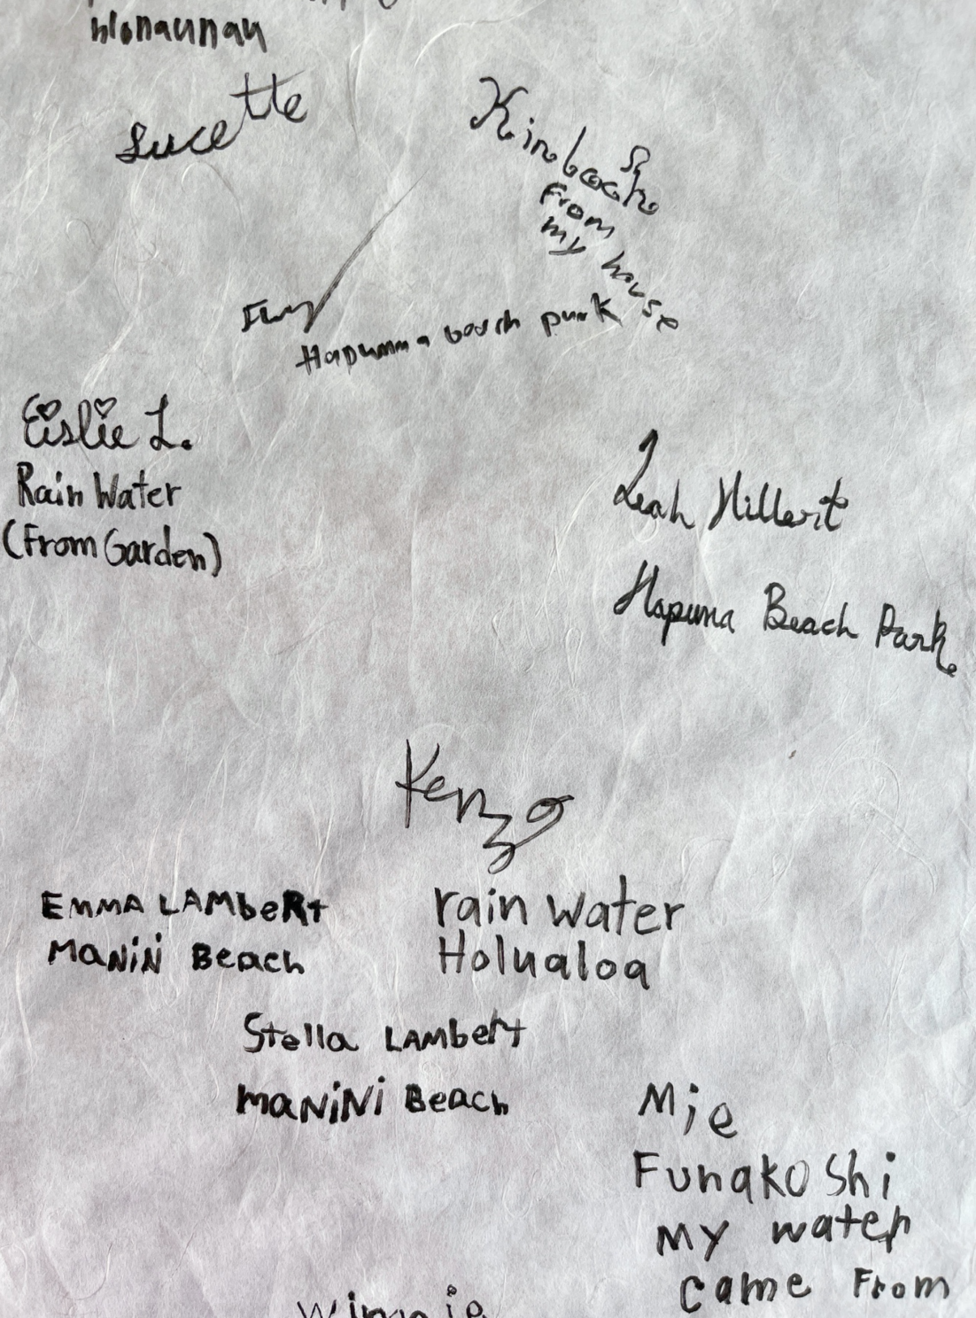 Lucette
from
my house
beach park
Eislie L.
Rain Water
(From Garden)
Leah Hillert
Hapuna Beach Park
Kenzo
rain water
Holualoa
EMMA LAMbeRt
MaNiNi Beach
Stella LAMbert
maNiNi Beach
Mie
Funakoshi
MY water
came From